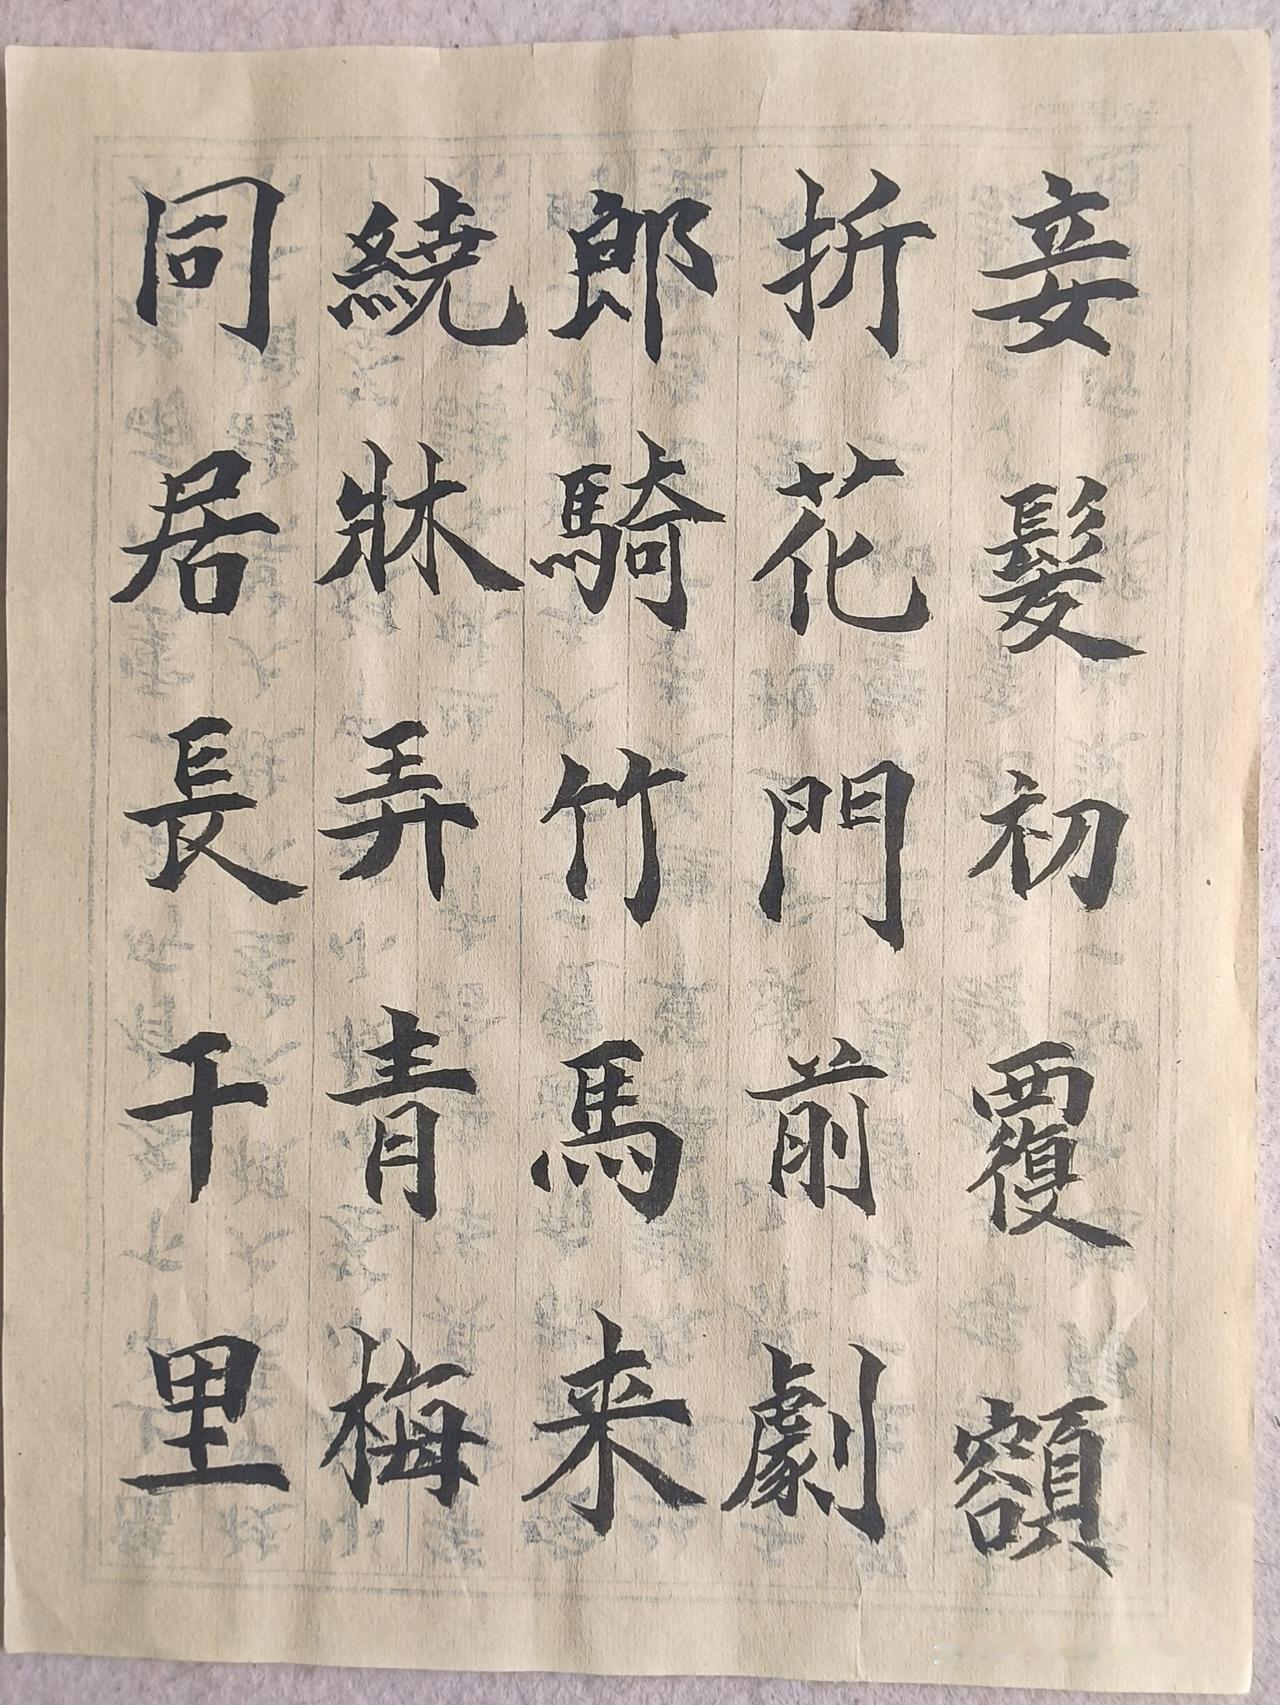 妾髮初覆額
折花門前劇
郎騎竹馬来
繞牀弄青梅
同居長干里